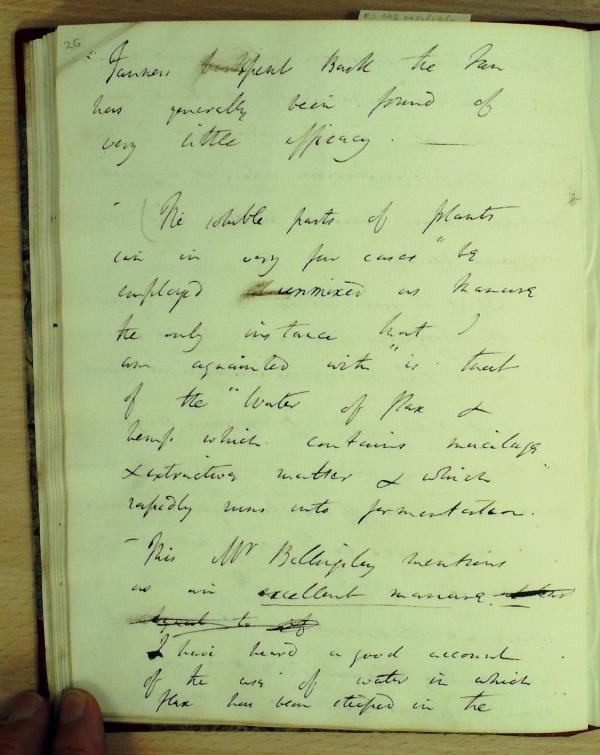 26
Tanners spent Bark the Tan
has generally been found of
very little efficacy. —
(The soluble parts of plants
can in very few cases "be
employed unmixed as manure
the only instance that I
am acquainted with" is that
of the "Water of flax &
hemp which contains mucilage
& extractive matter & which
rapidly runs into fermentation.
— This Mr Billingsley mentions
as an excellent manure.
I have heard a good account
of the use of water in which
flax has been steeped in the